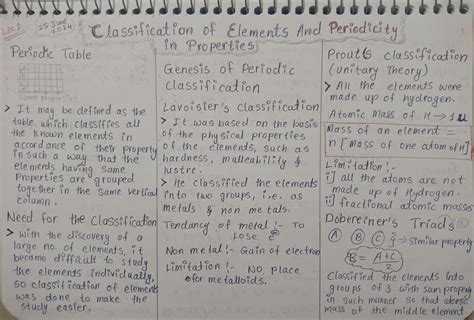 Lec 1
25 June 2024
Classification of Elements And Periodicity
in Properties
Periodic Table
Same Properties
> It may be defined as the
table which classifies all
the known elements in
accordance of their property
in such a way that the
elements having same
Properties are grouped
together in the same vertical
column.
Need for the Classification
> With the discovery of a
large no. of elements, it
became difficult to study
the elements individually,
so classification of elements
was done to make the
study easier.
Genesis of Periodic
Classification
Lavoisier's Classification
> It was based on the basis
of the physical properties
of the elements, such as
hardness, malleability &
lustre.
> He classified the elements
into two groups, i.e. as
metals & non metals.
Tendancy of metal :- To
Lose e⁻
Non metal :- Gain of electron
Limitation :- No place
for metalloids.
Prout's classification
(Unitary Theory)
> All the elements were
made up of hydrogen.
Atomic Mass of H → 1u
Mass of an element =
n [Mass of one atom of H]
Limitation :-
i] all the atoms are not
made up of Hydrogen.
ii] fractional atomic masses
Dobereiner's Triads
A B C → similar property
B = A+C / 2
Classified the elements into
groups of 3 with sam property
in such manner so that atomic
mass of the middle element